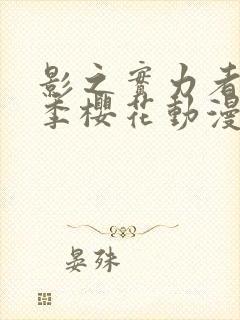 影之實力者
季櫻花動漫
晏殊